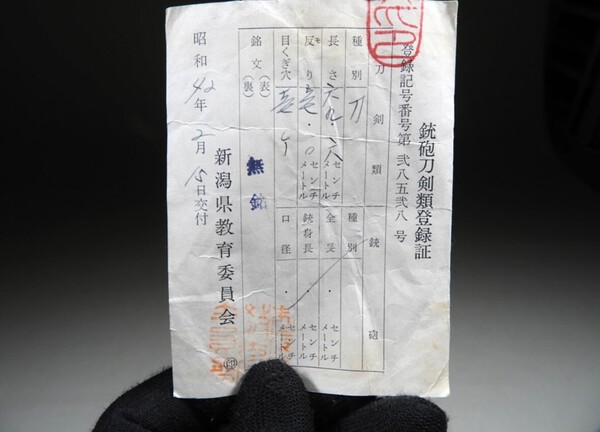 銃砲刀剣類登録証
登録記号番号第 弐八五弐八 号
刀剣類 銃砲
種別 刀 種別
長さ 六九・六 センチメートル 全長 ・ センチメートル
反り 壱・〇 センチメートル 銃身長 ・ センチメートル
目くぎ穴 壱ケ 口径 ・ センチメートル
銘文(表)(裏) 無銘
新潟県教育委員会 印
昭和42年2月15日交付